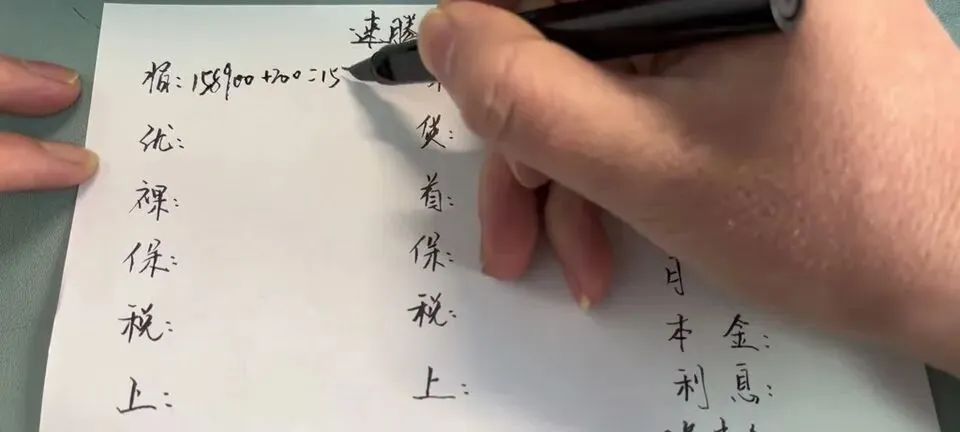 速腾
指: 158900+200=15
优: 贷:
裸: 首:
保: 保:
月
税: 税:
本 金:
上: 上:
利 息: